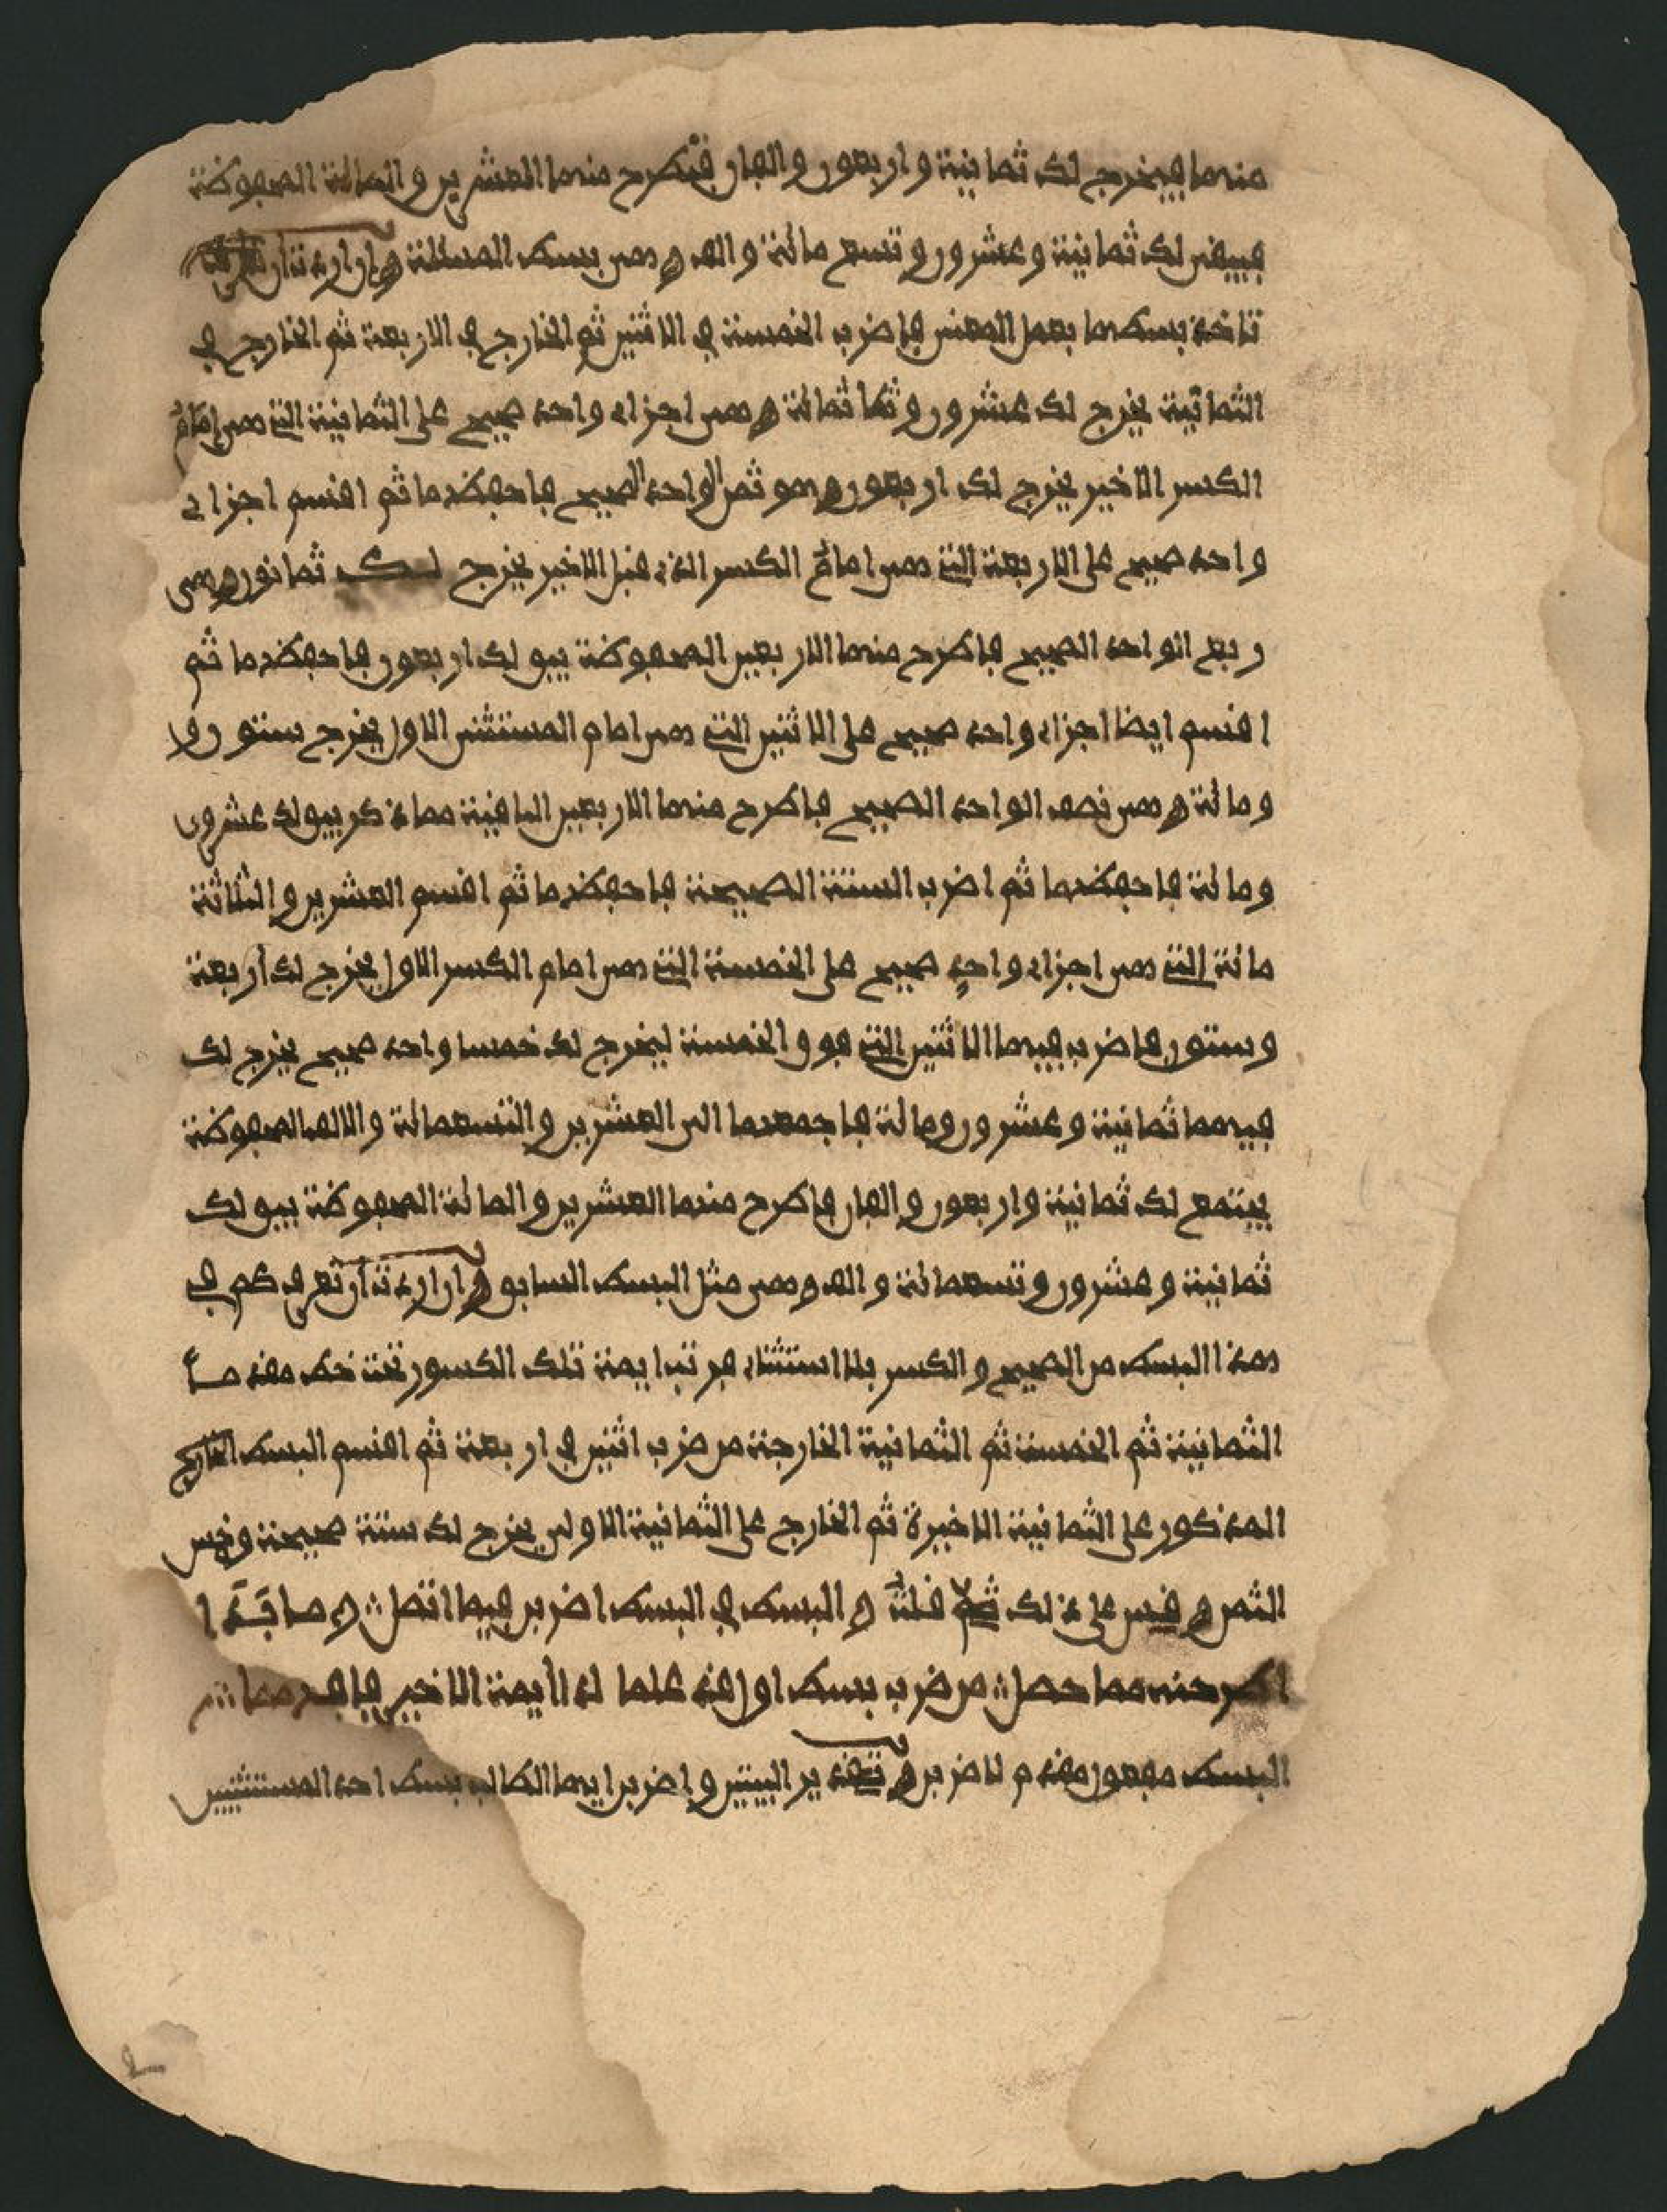 منها فيخرج لك ثمانية واربعون والفان فتطرح منها العشرين والمائة المحفوظة
فيبقى لك ثمانية وعشرون وتسع مائة والف وهى بسط المسئلة وان اردت ان
تاخذ بسطها بعمل المعنى فاضرب الخمسة في الاثنين ثم الخارج في الاربعة ثم الخارج في
الثمانية يخرج لك عشرون وثلاثمائة وهى اجزاء واحد صحيح على الثمانية التى هى امام
الكسر الاخير يخرج لك اربعون وهو ثمن الواحد الصحيح فاحفظها ثم اقسم اجزاء
واحد صحيح على الاربعة التى هى امام الكسر الذى قبل الاخير يخرج لك ثمانون وهى
ربع الواحد الصحيح فاطرح منها الاربعين المحفوظة يبق لك اربعون فاحفظها ثم
اقسم ايضا اجزاء واحد صحيح على الاثنين التى هى امام المستثنى الاول يخرج ستون
ومائة وهى نصف الواحد الصحيح فاطرح منها الاربعين الباقية مما ذكر يبق لك عشرون
ومائة فاحفظها ثم اضرب الستة الصحيحة فاحفظها ثم اقسم العشرين والثلاثة
مائة التى هى اجزاء واحد صحيح على الخمسة التى هى امام الكسر الاول يخرج لك اربعة
وستون فاضرب فيها الاثنين التى فوق الخمسة ليخرج لك خمسا واحد صحيح يخرج لك
فيهما ثمانية وعشرون ومائة فاجمعها الى العشرين والتسعمائة والالف المحفوظة
يجتمع لك ثمانية واربعون والفان فاطرح منها العشرين والمائة المحفوظة يبق لك
ثمانية وعشرون وتسعمائة والف وهى مثل البسط السابق وان اردت ان تعرف كم في
هذا البسط من الصحيح والكسر بلا استثناء فرتب ايمة تلك الكسور تحت خط مقدما
الثمانية ثم الخمسة ثم الثمانية الخارجة من ضرب اثنين في اربعة ثم اقسم البسط الخارج
المذكور على الثمانية الاخيرة ثم الخارج على الثمانية الاولى يخرج لك ستة صحيحة وخمس
الثمن وقس على ذلك ثم قلت والبسط في البسط اضربن فيما اتصل
اطرحنه مما حصل من ضرب بسط اول قد علما له الايمة الاخير
البسط مفعول مقدم لاضربن وتقدير البيتين واضرب ايها الطالب بسط احد المستثنيين